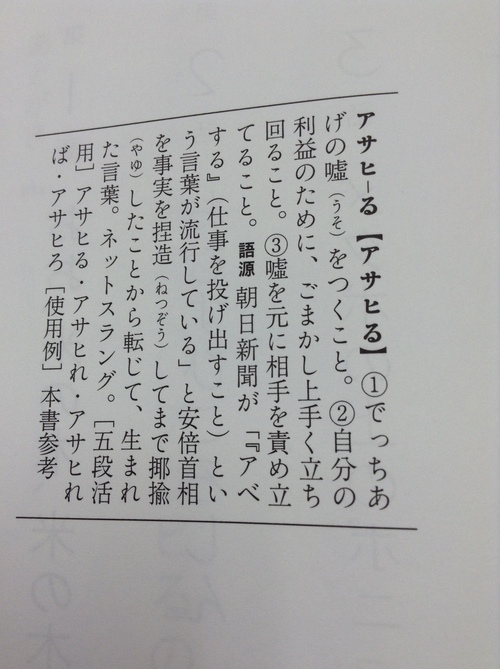 アサヒ−る【アサヒる】①でっちあ
げの嘘（うそ）をつくこと。②自分の
利益のために、ごまかし上手く立ち
回ること。③嘘を元に相手を責め立
てること。語源 朝日新聞が「『アベ
する』（仕事を投げ出すこと）とい
う言葉が流行している」と安倍首相
を事実を捏造（ねつぞう）してまで揶揄
（やゆ）したことから転じて、生まれ
た言葉。ネットスラング。［五段活
用］アサヒる・アサヒれ・アサヒれ
ば・アサヒろ［使用例］本書参考